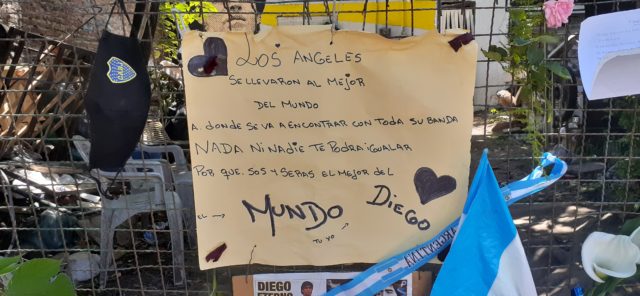 LOS ANGELES
SE LLEVARON AL MEJOR
DEL MUNDO
A. DONDE SE VA A ENCONTRAR CON TODA SU BANDA
NADA NI NADIE TE PODRA IGUALAR
POR QUE. SOS Y SERAS EL MEJOR DEL
EL → MUNDO DIEGO
TU YO
ARGENTINA
DIEGO
ETERNO
CABJ